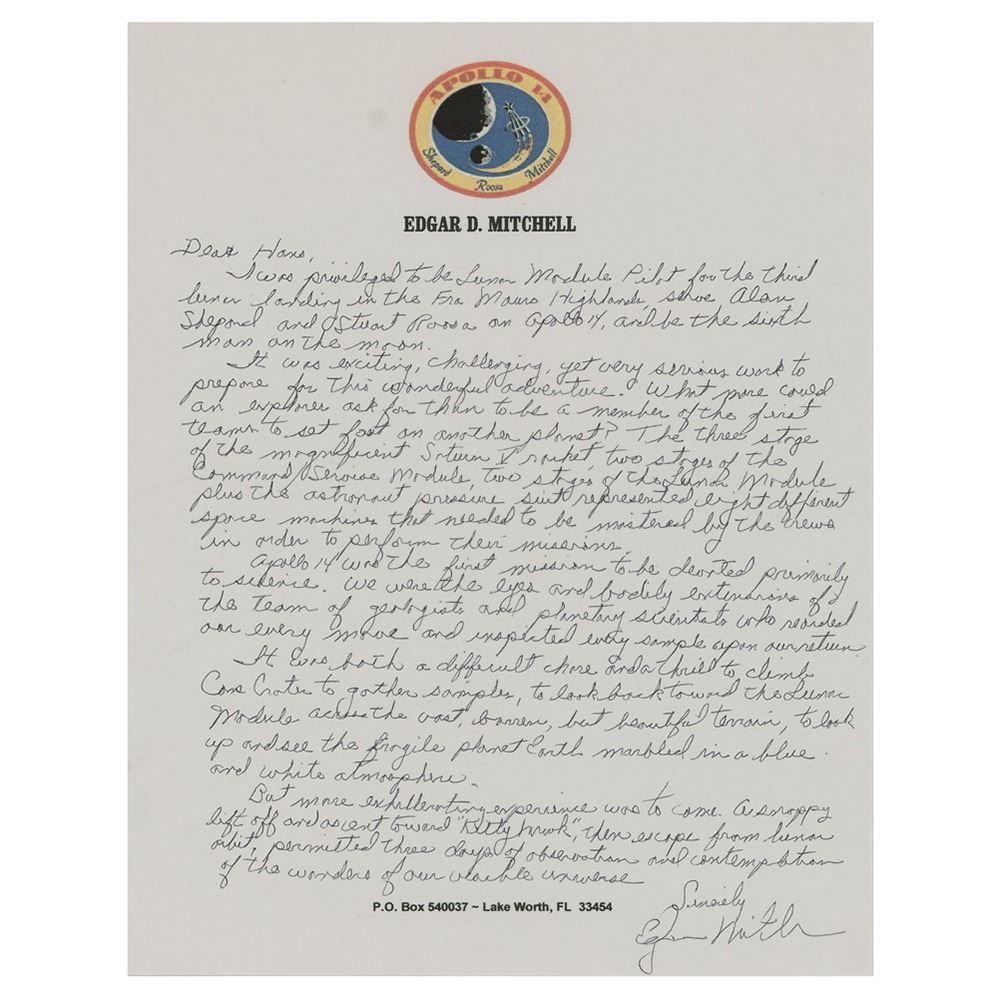 APOLLO 14
Shepard Roosa Mitchell
EDGAR D. MITCHELL
Dear Hans,
I was privileged to be Lunar Module Pilot for the third
lunar landing in the Fra Mauro Highlands, serve Alan
Shepard and Stuart Roosa on Apollo 14, and be the sixth
man on the moon.
It was exciting, challenging, yet very serious work to
prepare for this wonderful adventure. What more could
an explorer ask for than to be a member of the first
teams to set foot on another planet? The three stage
of the magnificent Saturn V rocket, two stages of the
Command/Service Module, two stages of the Lunar Module
plus the astronaut pressure suit represented eight different
space machines that needed to be mastered by the crews
in order to perform their missions.
Apollo 14 was the first mission to be devoted primarily
to science. We were the eyes and bodily extensions of
the team of geologists and planetary scientists who recorded
our every move and inspected every sample upon our return.
It was both a difficult chore and a thrill to climb
Cone Crater to gather samples, to look back toward the Lunar
Module across the vast, barren, but beautiful terrain, to look
up and see the fragile planet Earth marbled in a blue
and white atmosphere.
But more exhillerating experience was to come. A snappy
lift off and ascent toward "Kitty Hawk", then escape from lunar
orbit, permitted three days of observation and contemplation
of the wonders of our visible universe
Sincerely
Edgar Mitchell
P.O. Box 540037 ~ Lake Worth, FL 33454